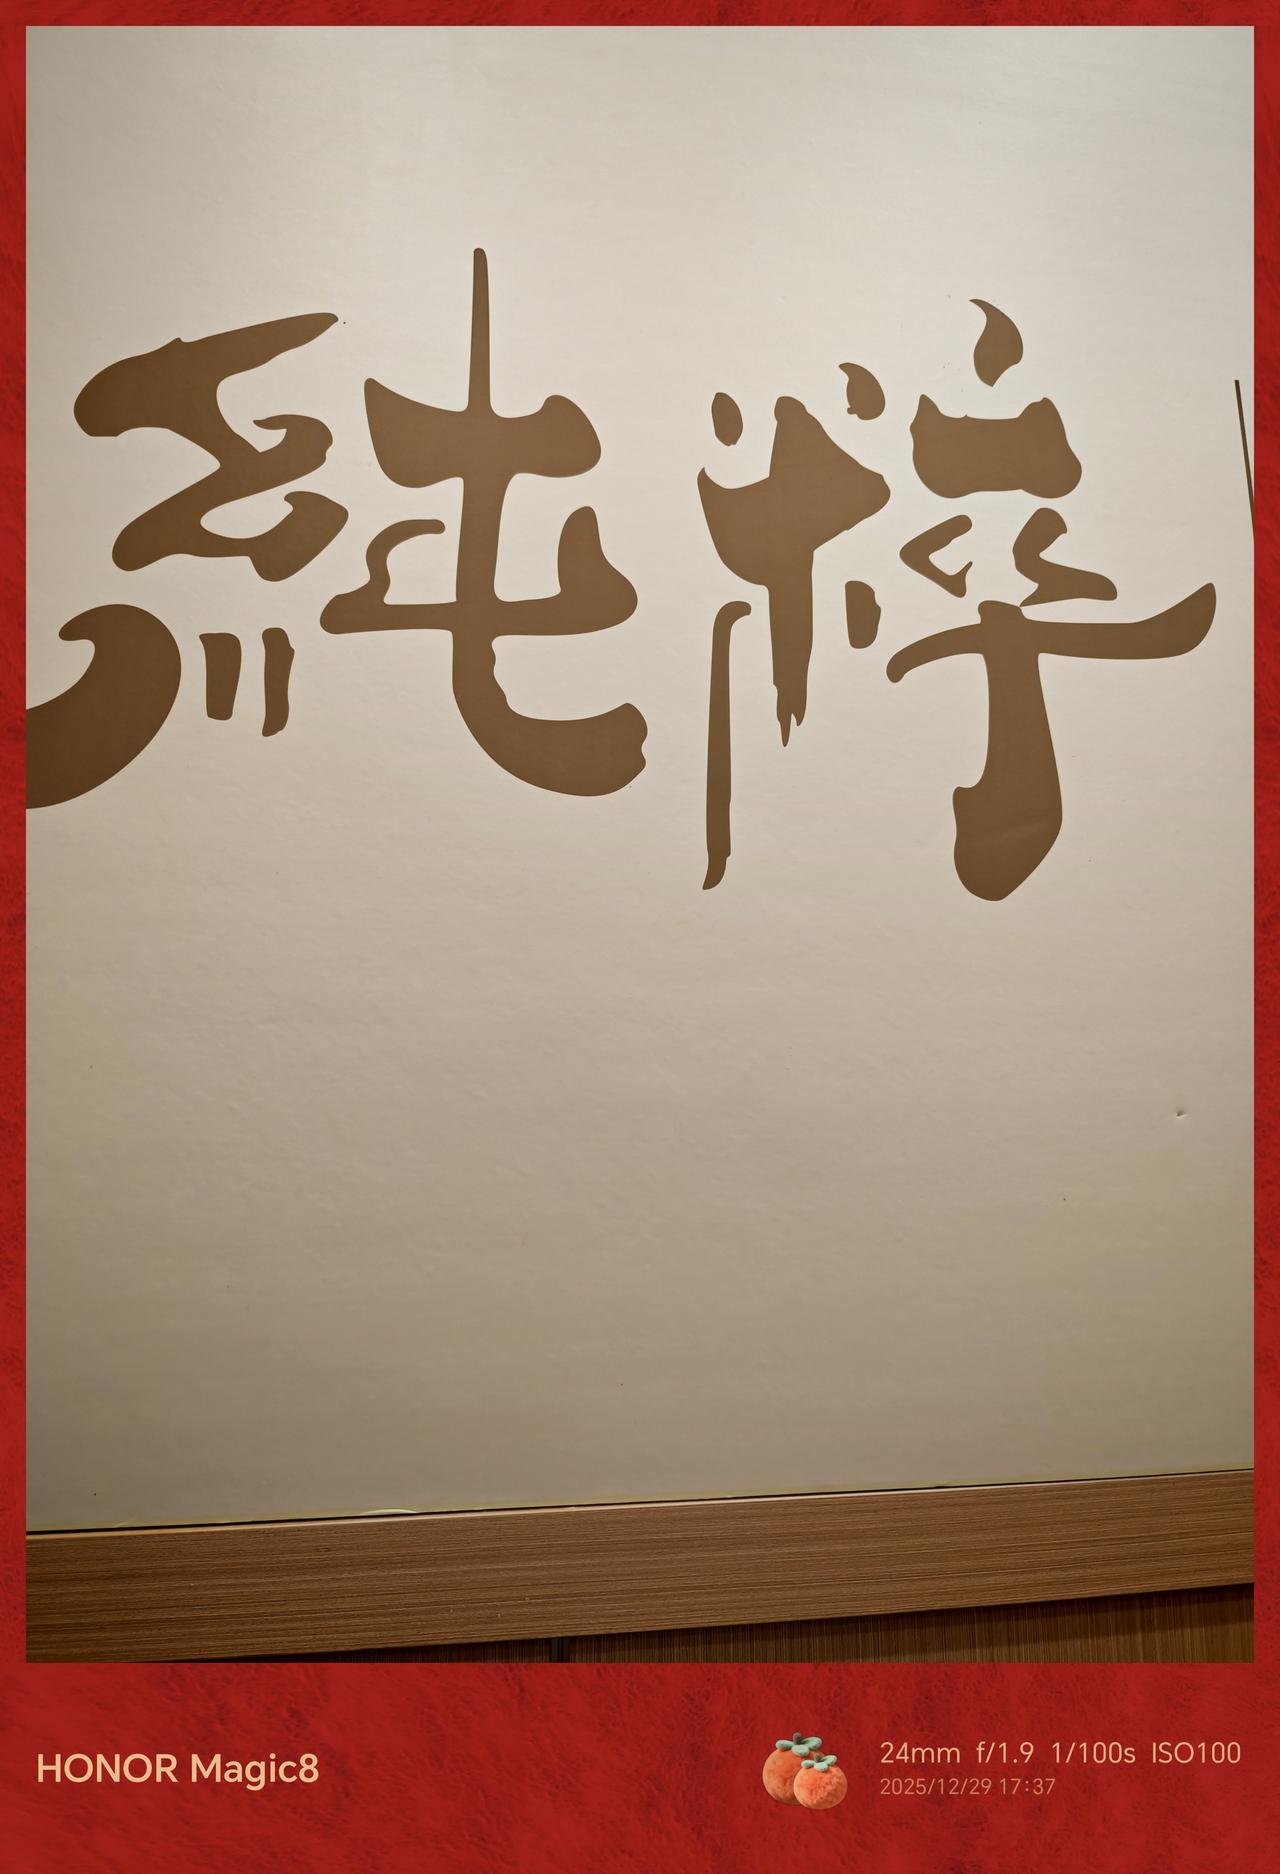 純粹
HONOR Magic8
24mm f/1.9 1/100s ISO100
2025/12/29 17:37